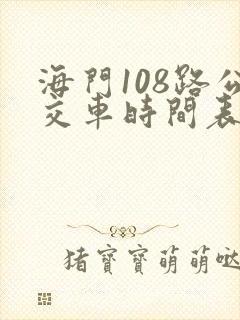 海門108路公
交車時間表
猪寶寶萌萌哒